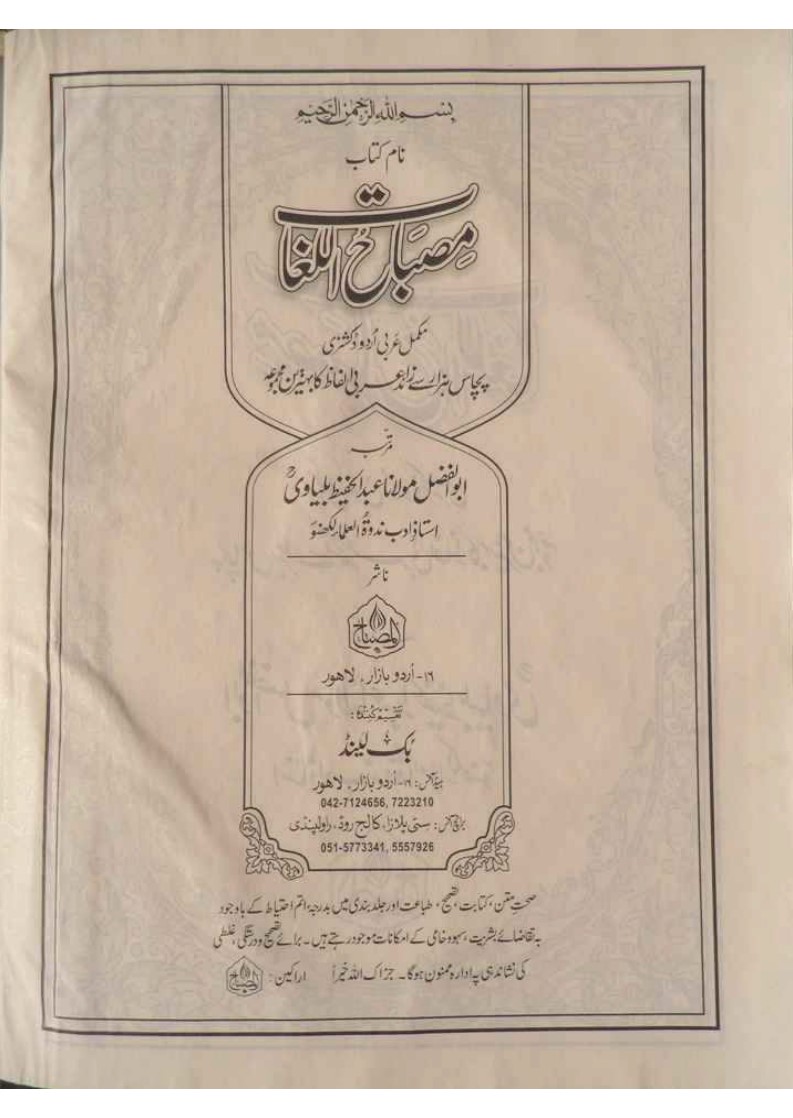 بسم الله الرحمن الرحيم
نام کتاب
مِصبَاحُ اللغات
مکمل عربی اُردو ڈکشنری
پچاس ہزار سے زائد عربی الفاظ کا بہترین مجموعہ
مرتب
ابوالفضل مولانا عبدالحفیظ بلیاویؒ
استاذِ ادب ندوۃُ العلماء لکھنؤ
ناشر
المصباح
۱۶- اُردو بازار، لاہور
تقسیم کنندہ:
بُک لینڈ
ہیڈ آفس: ۱۶- اُردو بازار، لاہور
042-7124656, 7223210
برانچ آفس: سٹی پلازا، کالج روڈ، راولپنڈی
051-5773341, 5557926
صحتِ متن، کتابت، تصحیح، طباعت اور جلد بندی میں بدرجۂ اتم احتیاط کے باوجود
بہ تقاضائے بشریت، سہو و خامی کے امکانات موجود رہتے ہیں۔ برائے تصحیح و درستگی، غلطی
کی نشاندہی پہ ادارہ ممنون ہوگا۔ جزاک اللہ خیراً اراکین: المصباح